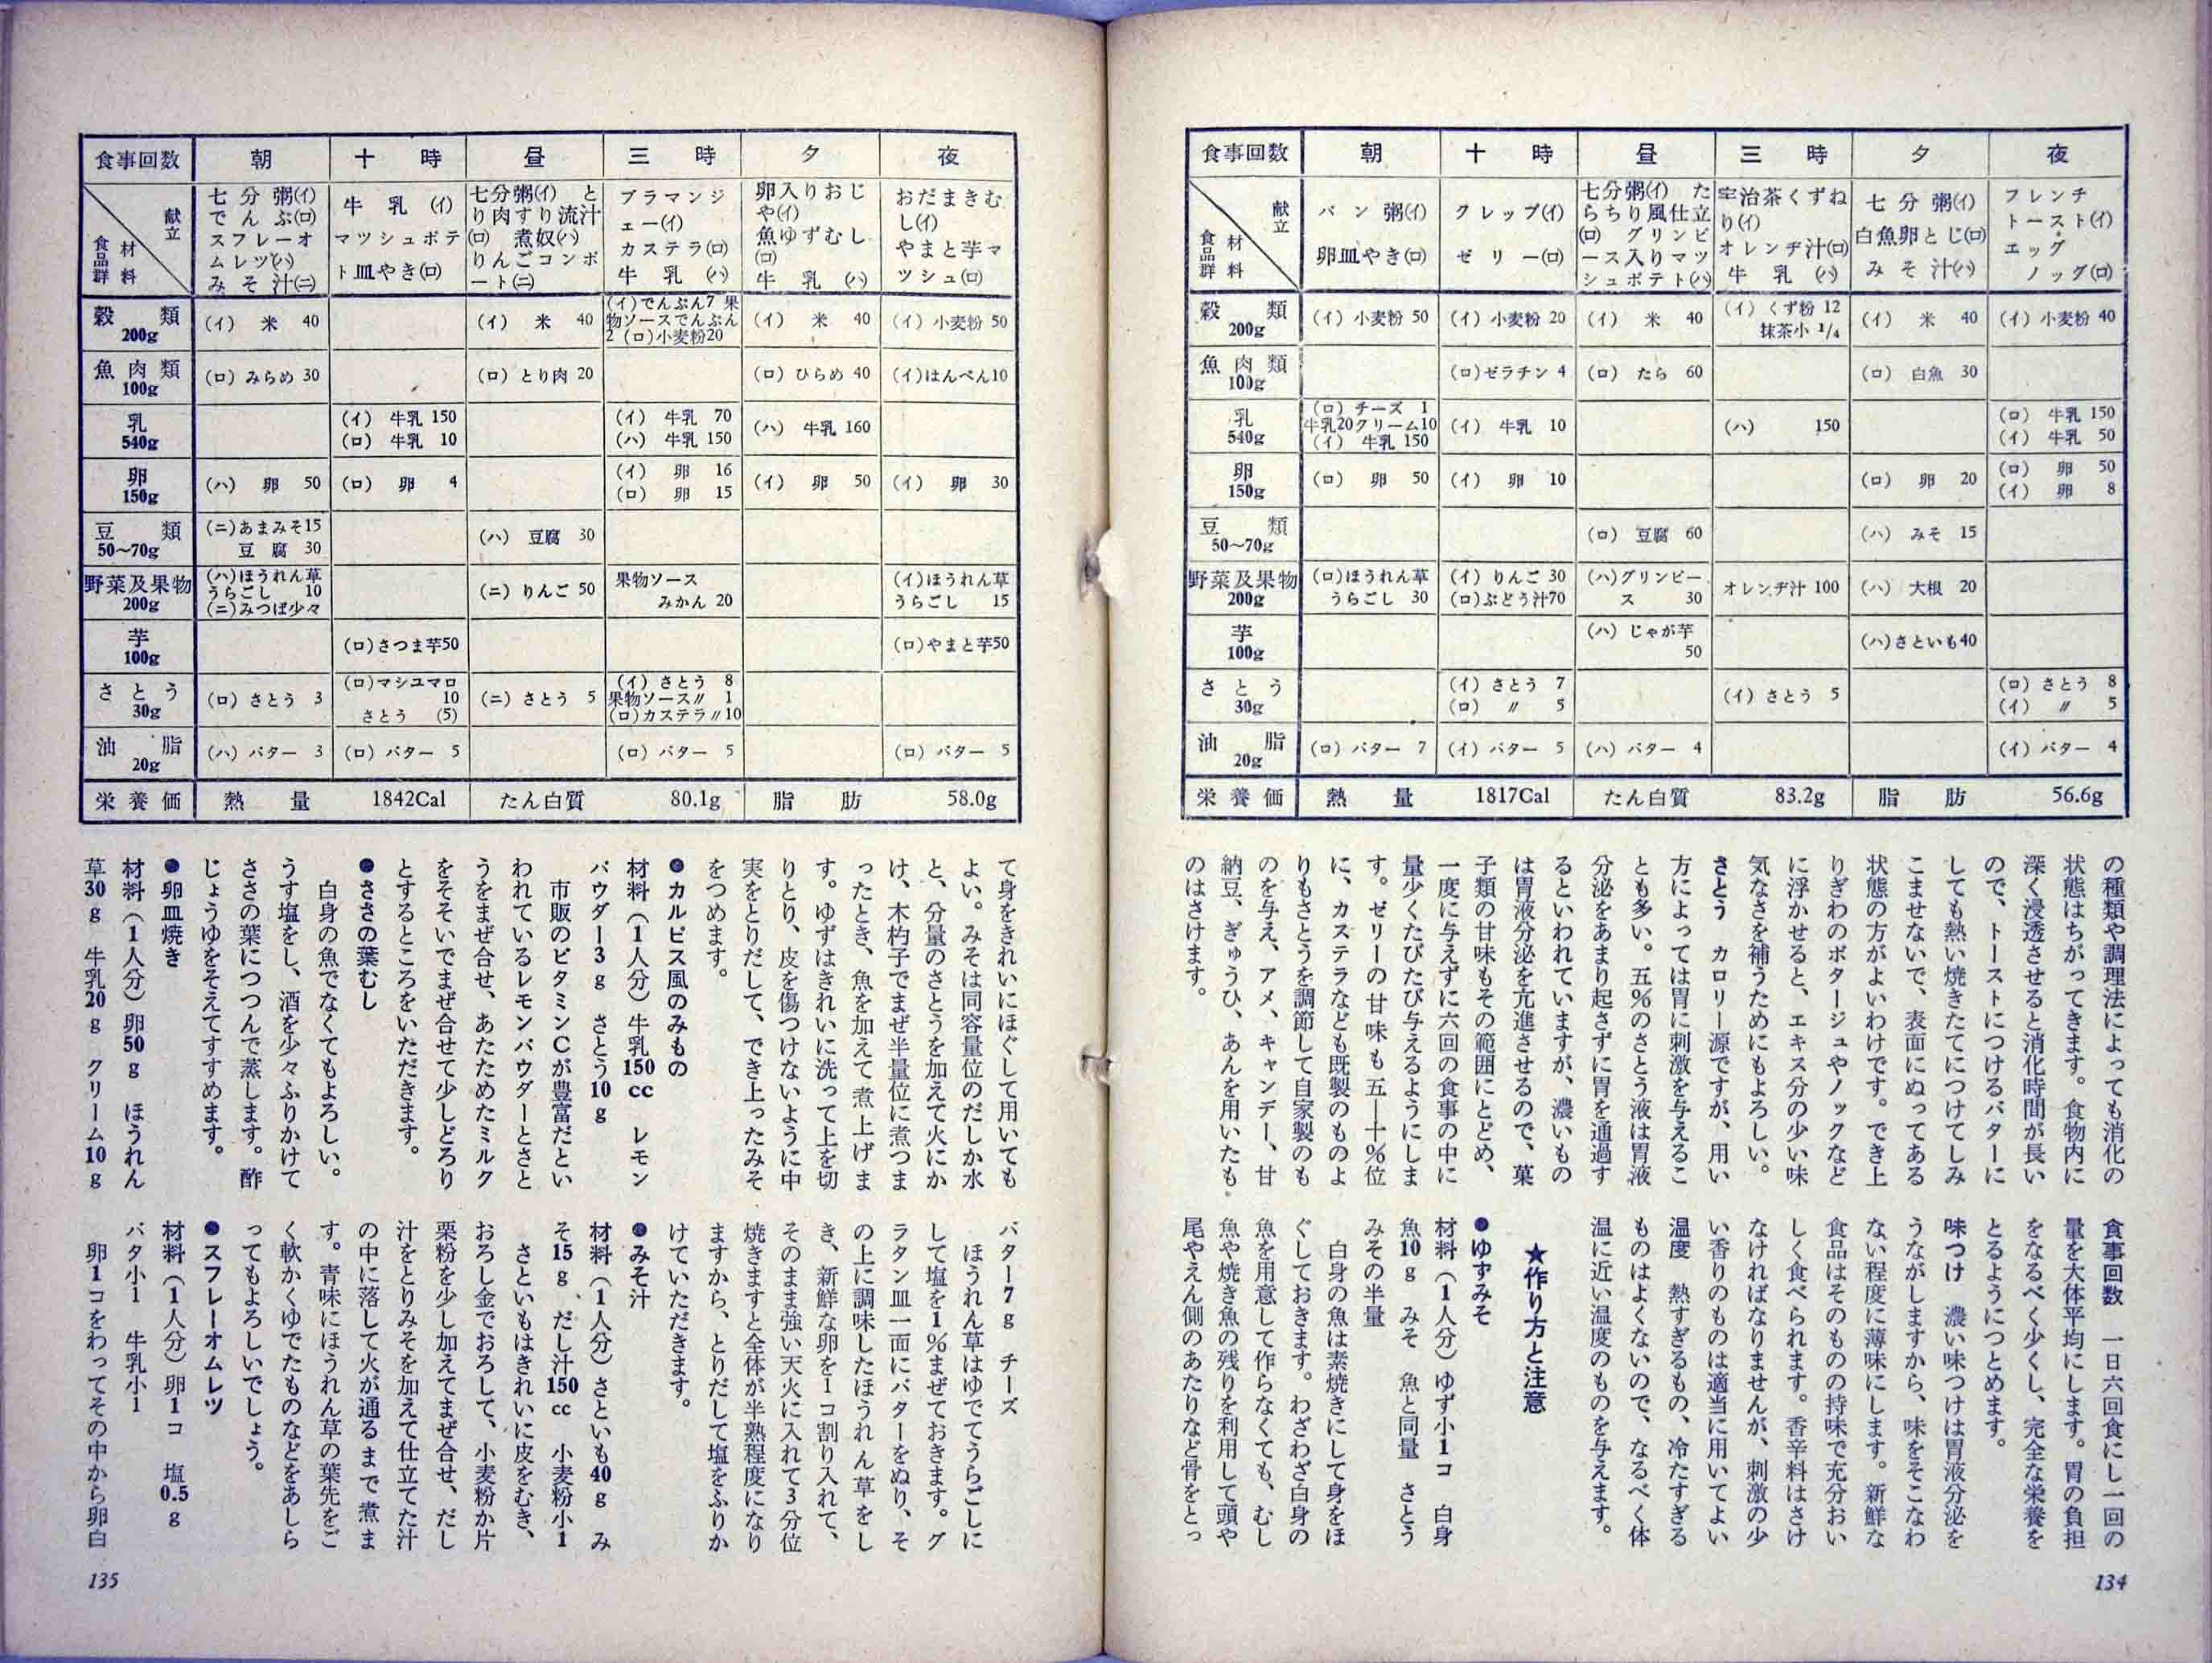 食事回数 朝 十時 昼 三時 夕 夜
献立 材料 食品群
パン粥(イ) 卵皿やき(ロ)
クレップ(イ) ゼリー(ロ)
七分粥(イ) たらちり風仕立(ロ) グリンピース入りマッシュポテト(ハ)
宇治茶くずねり(イ) オレンヂ汁(ロ) 牛乳(ハ)
七分粥(イ) 白魚卵とじ(ロ) みそ汁(ハ)
フレンチトースト(イ) エッグノッグ(ロ)
穀類 200g (イ)小麦粉 50 (イ)小麦粉 20 (イ) 米 40 (イ)くず粉 12 抹茶小 1/4 (イ) 米 40 (イ)小麦粉 40
魚肉類 100g (ロ)ゼラチン 4 (ロ) たら 60 (ロ) 白魚 30
乳 540g (ロ)チーズ 1 牛乳20クリーム10 (イ) 牛乳 150 (イ) 牛乳 10 (ハ) 150 (ロ) 牛乳 150 (イ) 牛乳 50
卵 150g (ロ) 卵 50 (イ) 卵 10 (ロ) 卵 20 (ロ) 卵 50 (イ) 卵 8
豆類 50〜70g (ロ) 豆腐 60 (ハ) みそ 15
野菜及果物 200g (ロ)ほうれん草うらごし 30 (イ)りんご 30 (ロ)ぶどう汁70 (ハ)グリンピース 30 オレンヂ汁 100 (ハ) 大根 20
芋 100g (ハ)じゃが芋 50 (ハ)さといも40
さとう 30g (イ)さとう 7 (ロ) 〃 5 (イ)さとう 5 (ロ)さとう 8 (イ) 〃 5
油脂 20g (ロ)バター 7 (イ)バター 5 (ハ)バター 4 (イ)バター 4
栄養価 熱量 1817Cal たん白質 83.2g 脂肪 56.6g
の種類や調理法によっても消化の
状態はちがってきます。食物内に
深く浸透させると消化時間が長い
ので、トーストにつけるバターに
しても熱い焼きたてにつけてしみ
こませないで、表面にぬってある
状態の方がよいわけです。でき上
りぎわのポタージュやノックなど
に浮かせると、エキス分の少い味
気なさを補うためにもよろしい。
さとう カロリー源ですが、用い
方によっては胃に刺激を与えるこ
とも多い。五%のさとう液は胃液
分泌をあまり起さずに胃を通過す
るといわれていますが、濃いもの
は胃液分泌を亢進させるので、菓
子類の甘味もその範囲にとどめ、
一度に与えずに六回の食事の中に
量少くたびたび与えるようにしま
す。ゼリーの甘味も五―十%位
に、カステラなども既製のものよ
りもさとうを調節して自家製のも
のを与え、アメ、キャンデー、甘
納豆、ぎゅうひ、あんを用いたも
のはさけます。
食事回数 一日六回食にし一回の
量を大体平均にします。胃の負担
をなるべく少くし、完全な栄養を
とるようにつとめます。
味つけ 濃い味つけは胃液分泌を
うながしますから、味をそこなわ
ない程度に薄味にします。新鮮な
食品はそのものの持味で充分おい
しく食べられます。香辛料はさけ
なければなりませんが、刺激の少
い香りのものは適当に用いてよい
温度 熱すぎるもの、冷たすぎる
ものはよくないので、なるべく体
温に近い温度のものを与えます。
★作り方と注意
●ゆずみそ
材料(1人分)ゆず小1コ 白身
魚10g みそ 魚と同量 さとう
みその半量
白身の魚は素焼きにして身をほ
ぐしておきます。わざわざ白身の
魚を用意して作らなくても、むし
魚や焼き魚の残りを利用して頭や
尾やえん側のあたりなど骨をとっ
134
食事回数 朝 十時 昼 三時 夕 夜
献立 材料 食品群
七分粥(イ) でんぶ(ロ) スフレーオムレツ(ハ) みそ汁(ニ)
牛乳(イ) マッシュポテト皿やき(ロ)
七分粥(イ) とり肉すり流汁(ロ) 煮奴(ハ) りんごコンポート(ニ)
ブラマンジェー(イ) カステラ(ロ) 牛乳(ハ)
卵入りおじや(イ) 魚ゆずむし(ロ) 牛乳(ハ)
おだまきむし(イ) やまと芋マッシュ(ロ)
穀類 200g (イ) 米 40 (イ) 米 40 (イ)でんぷん7 果物ソースでんぷん2 (ロ)小麦粉20 (イ) 米 40 (イ)小麦粉 50
魚肉類 100g (ロ)みらめ 30 (ロ)とり肉 20 (ロ)ひらめ 40 (イ)はんぺん10
乳 540g (イ) 牛乳 150 (ロ) 牛乳 10 (イ) 牛乳 70 (ハ) 牛乳 150 (ハ) 牛乳 160
卵 150g (ハ) 卵 50 (ロ) 卵 4 (イ) 卵 16 (ロ) 卵 15 (イ) 卵 50 (イ) 卵 30
豆類 50〜70g (ニ)あまみそ15 豆腐 30 (ハ) 豆腐 30
野菜及果物 200g (ハ)ほうれん草うらごし 10 (ニ)みつば少々 (ニ)りんご 50 果物ソース みかん 20 (イ)ほうれん草うらごし 15
芋 100g (ロ)さつま芋50 (ロ)やまと芋50
さとう 30g (ロ)さとう 3 (ロ)マシュマロ 10 さとう (5) (ニ)さとう 5 (イ)さとう 8 果物ソース〃 1 (ロ)カステラ〃10
油脂 20g (ハ)バター 3 (ロ)バター 5 (ロ)バター 5 (ロ)バター 5
栄養価 熱量 1842Cal たん白質 80.1g 脂肪 58.0g
て身をきれいにほぐして用いても
よい。みそは同容量位のだしか水
と、分量のさとうを加えて火にか
け、木杓子でまぜ半量位に煮つま
ったとき、魚を加えて煮上げま
す。ゆずはきれいに洗って上を切
りとり、皮を傷つけないように中
実をとりだして、でき上ったみそ
をつめます。
●カルピス風のみもの
材料(1人分)牛乳150cc レモン
パウダー3g さとう10g
市販のビタミンCが豊富だとい
われているレモンパウダーとさと
うをまぜ合せ、あたためたミルク
をそそいでまぜ合せて少しどろり
とするところをいただきます。
●ささの葉むし
白身の魚でなくてもよろしい。
うす塩をし、酒を少々ふりかけて
ささの葉につつんで蒸します。酢
じょうゆをそえてすすめます。
●卵皿焼き
材料(1人分)卵50g ほうれん
草30g 牛乳20g クリーム10g
バター7g チーズ
ほうれん草はゆでてうらごしに
して塩を1%まぜておきます。グ
ラタン皿一面にバターをぬり、そ
の上に調味したほうれん草をし
き、新鮮な卵を1コ割り入れて、
そのまま強い天火に入れて3分位
焼きますと全体が半熟程度になり
ますから、とりだして塩をふりか
けていただきます。
●みそ汁
材料(1人分)さといも40g み
そ15g だし汁150cc 小麦粉小1
さといもはきれいに皮をむき、
おろし金でおろして、小麦粉か片
栗粉を少し加えてまぜ合せ、だし
汁をとりみそを加えて仕立てた汁
の中に落して火が通るまで煮ま
す。青味にほうれん草の葉先をご
く軟かくゆでたものなどをあしら
ってもよろしいでしょう。
●スフレーオムレツ
材料(1人分)卵1コ 塩0.5g
バタ小1 牛乳小1
卵1コをわってその中から卵白
135